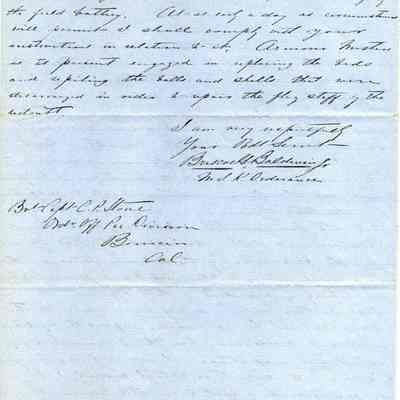 the field battery. At as early a day as circumstances
will permit I shall comply with your
instructions in relation to it. 
is at present engaged in replacing the beds
and repiling the balls and shells that were
disarranged in order to repair the flag staff of the
redoubt.
I am very respectfully
Your Obdt Servt
Briscoe G. Baldwin Jr
M.S.K. Ordnance
Bvt Capt C. P. Stone
Ordn Off Pac Division
Benicia
Cal